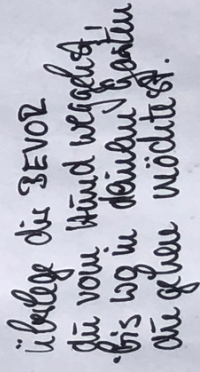 Überlege dir BEVOR
du vom Hund weggehst,
bis wo in deinem Garten
du gehen möchtest.